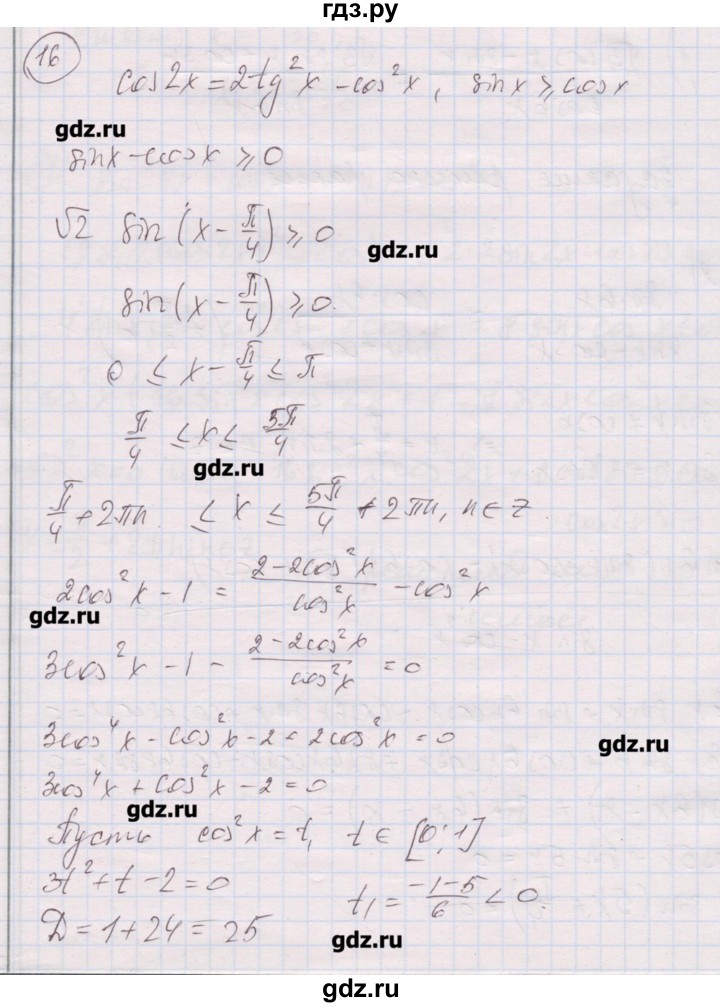 гдз.ру
16
cos2x = 2tg²x - cos²x, sinx ≥ cosx
gdz.ru
sinx - cosx ≥ 0
√2 sin(x - π/4) ≥ 0
gdz.ru
sin(x - π/4) ≥ 0.
0 ≤ x - π/4 ≤ π
π/4 ≤ x ≤ 5π/4
gdz.ru
π/4 + 2πn ≤ x ≤ 5π/4 + 2πn, n ∈ z.
2cos²x - 1 = (2 - 2cos²x)/(cos²x) - cos²x
gdz.ru
3cos²x - 1 - (2 - 2cos²x)/(cos²x) = 0
3cos⁴x - cos²x - 2 + 2cos²x = 0
gdz.ru
3cos⁴x + cos²x - 2 = 0
gdz.ru
Пусть cos²x = t, t ∈ [0; 1]
3t² + t - 2 = 0
t₁ = (-1-5)/6 < 0.
D = 1 + 24 = 25
gdz.ru
gdz.ru